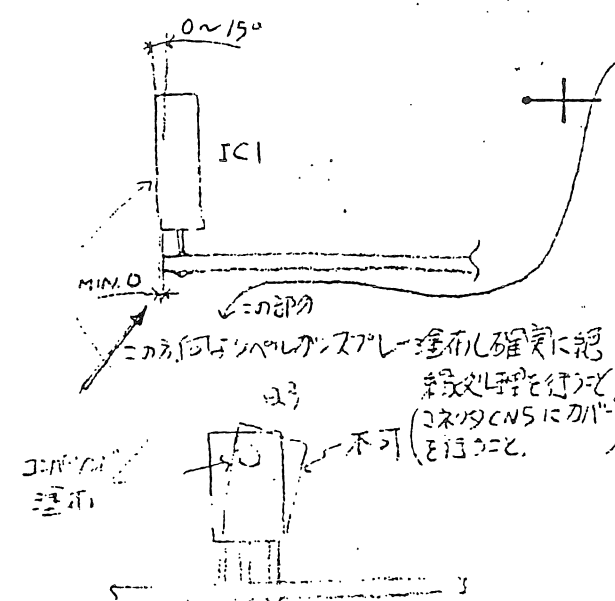 0~15°
IC1
MIN.0
この部分
この方向よりペルガンスプレー塗布し確実に絶
縁処理を行うこと
(コネクタCN5にカバー
を行うこと.)
不可
コンパウンド
塗布